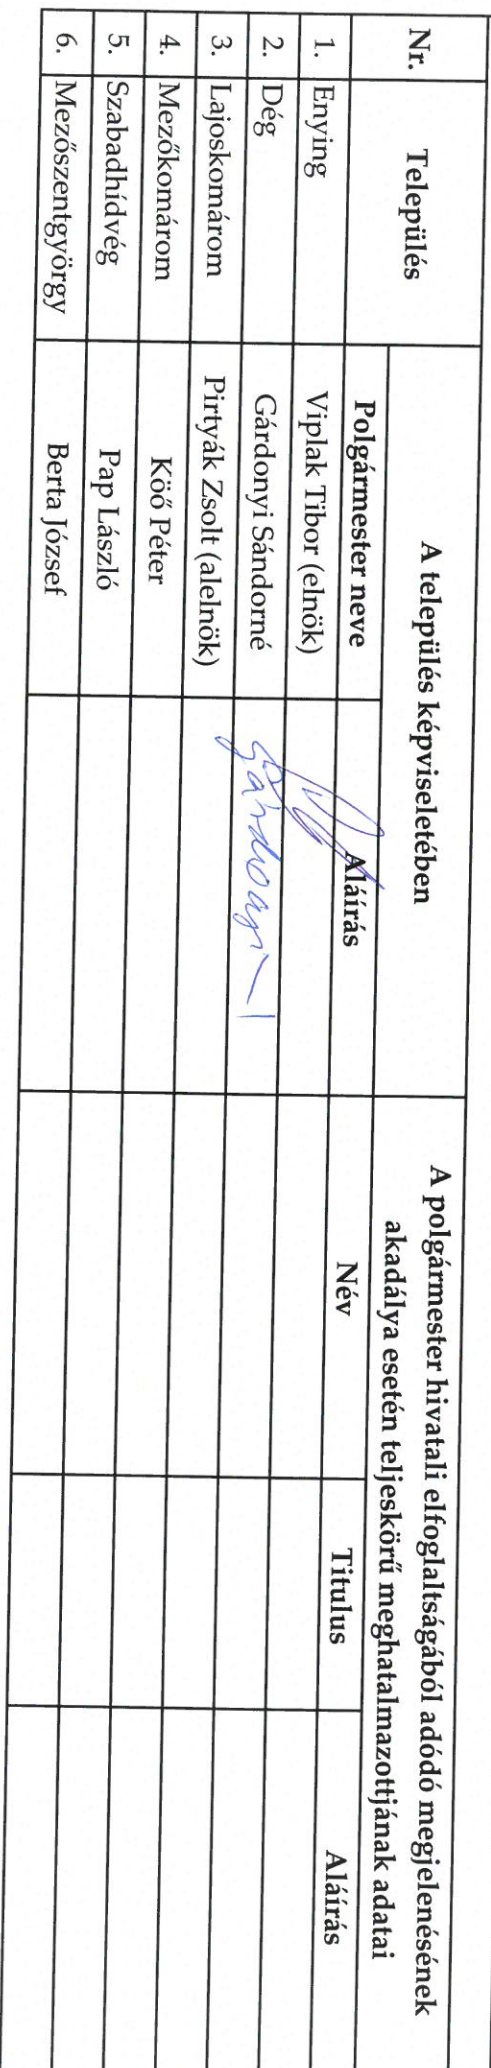 Nr.
Település
A település képviseletében
A polgármester hivatali elfoglaltságából adódó megjelenésének
akadálya esetén teljeskörű meghatalmazottjának adatai
Polgármester neve
Aláírás
Név
Titulus
Aláírás
1. Enying Viplak Tibor (elnök)
2. Dég Gárdonyi Sándorné Gárdonyi
3. Lajoskomárom Pirtyák Zsolt (alelnök)
4. Mezőkomárom Köő Péter
5. Szabadhídvég Pap László
6. Mezőszentgyörgy Berta József